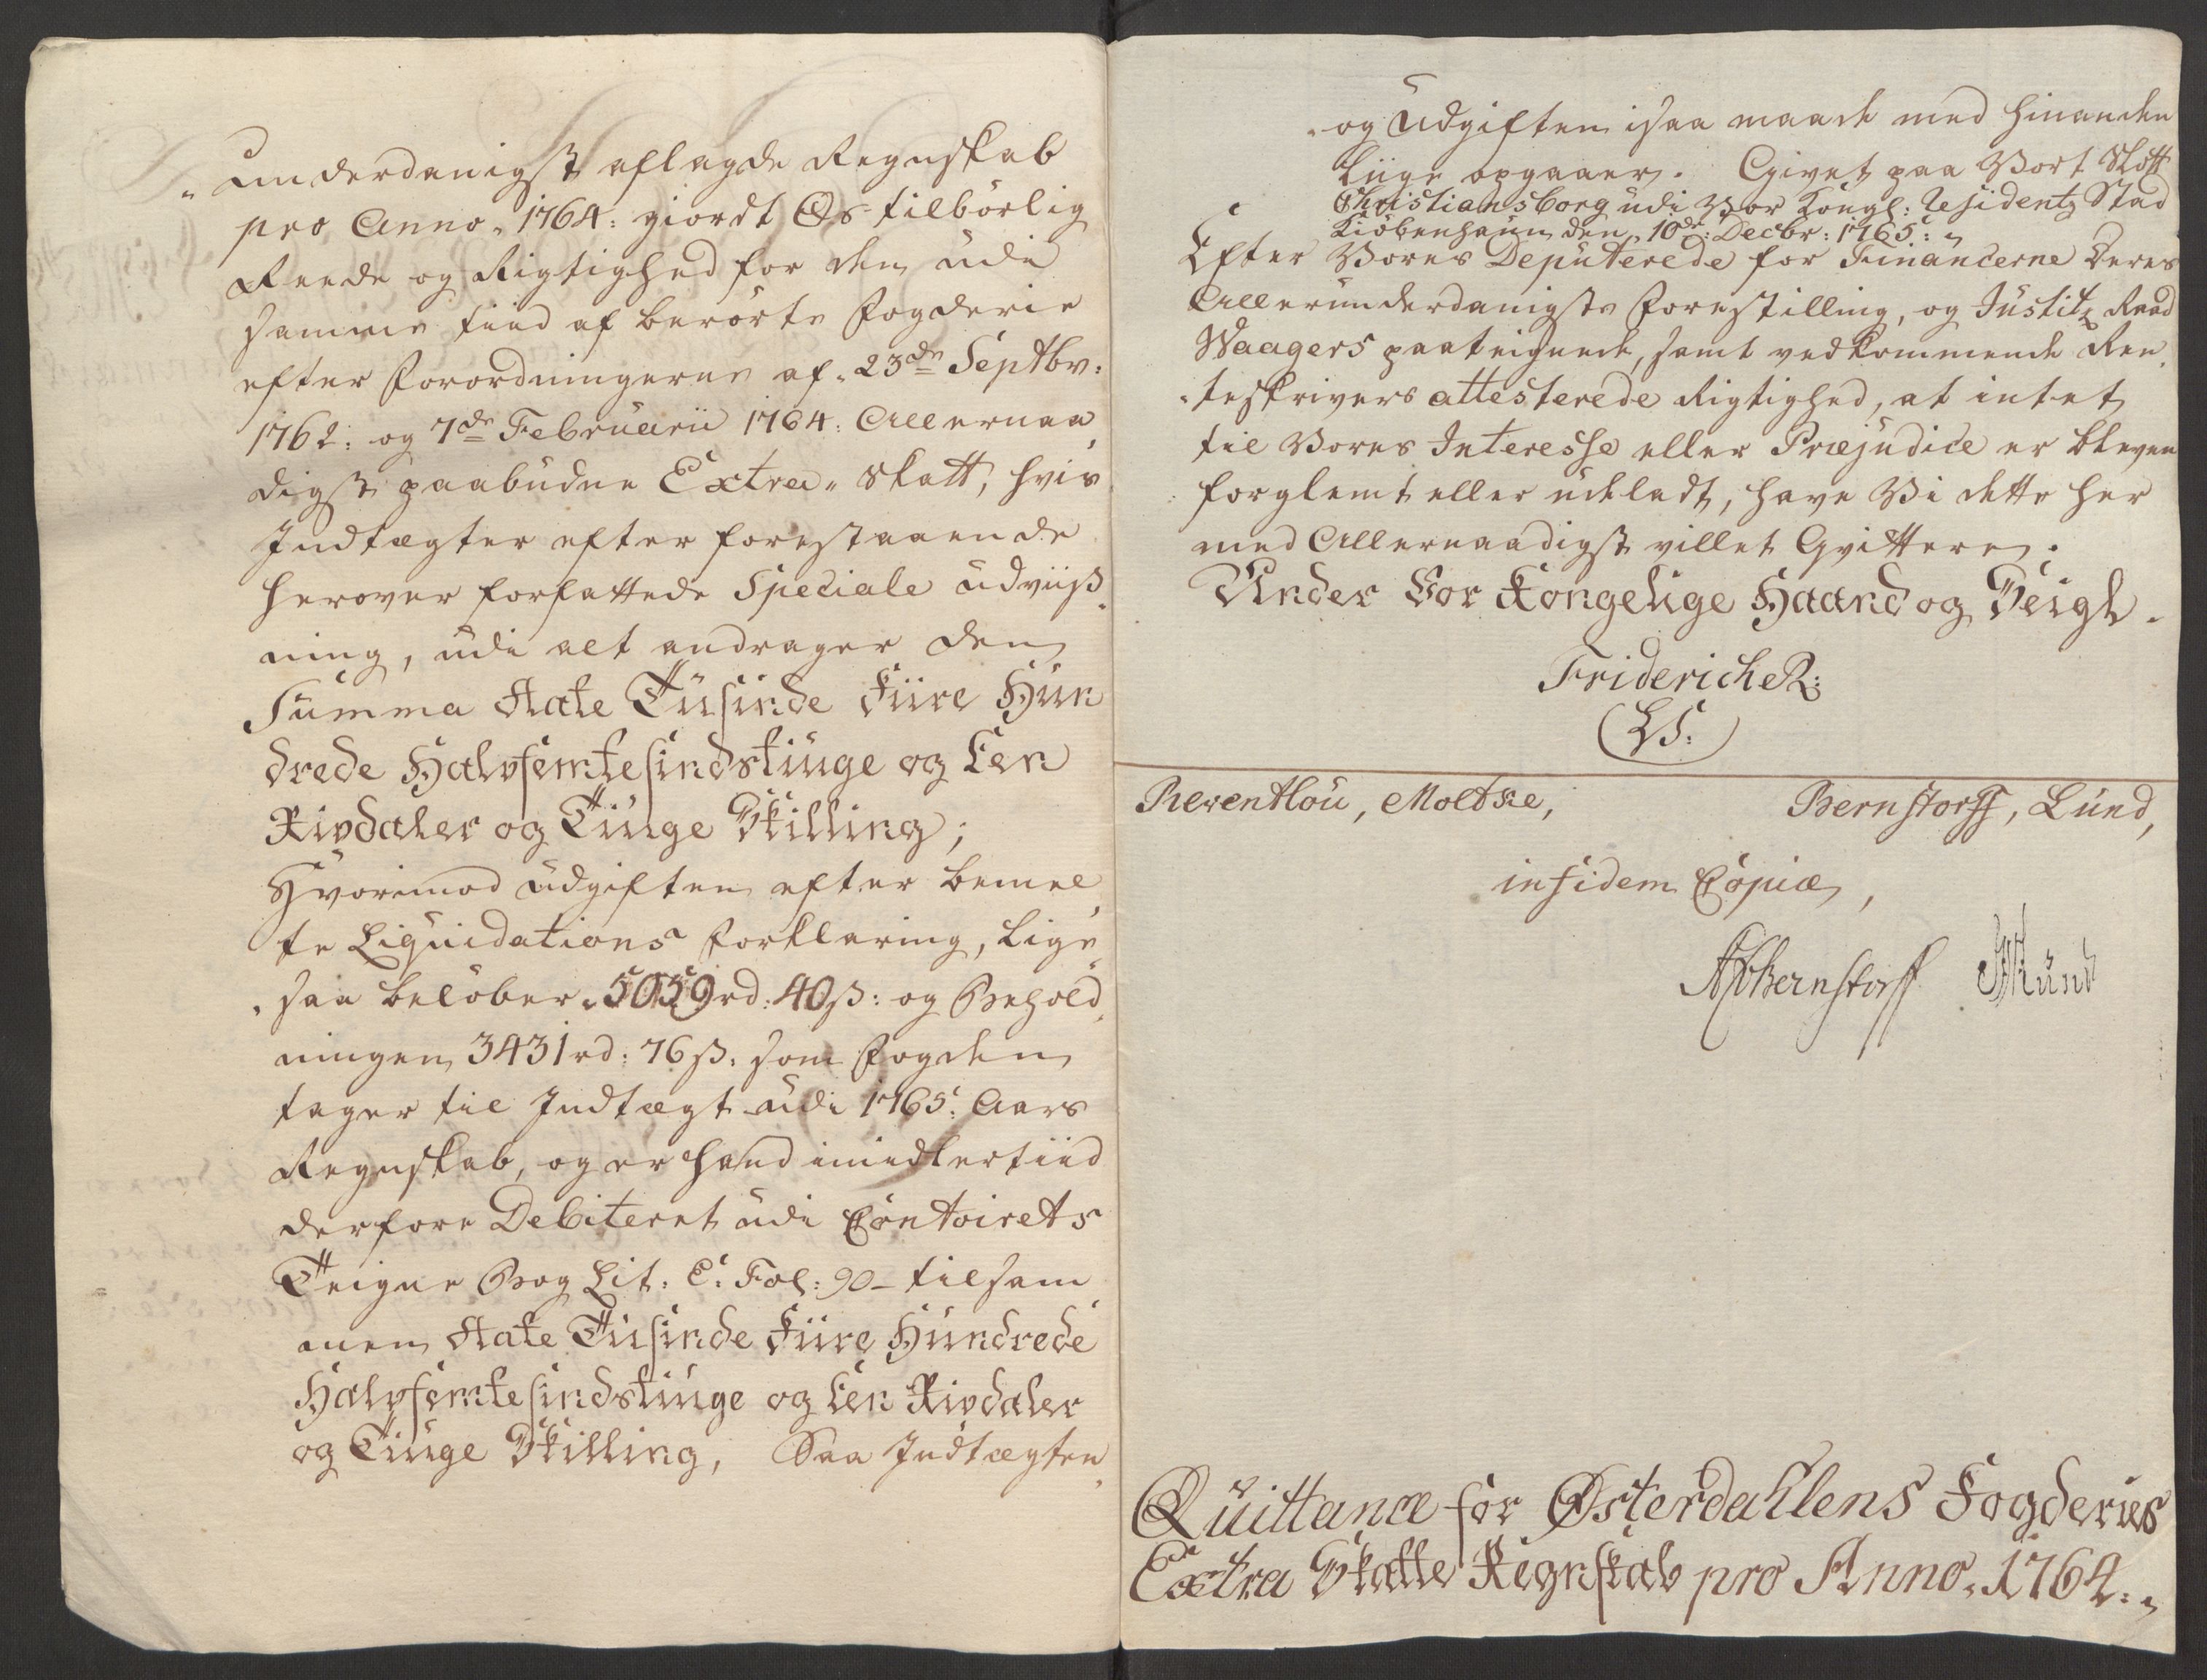 underdanigst aflagde Regnskab
pro Anno 1764: giordt Os tilbörlig
Reede og Rigtighed for den udi
samme tiid af berörte Fogderie
efter Forordningerne af 23de Septbr:
1762: og 7de Februarii 1764. Allernaa
digst paabudne Extra Skatt, hvis
Indtægter efter forestaaende
herover forfattede Speciale Udviiß
ning, udi alt andrager den
Summa Aate Tusinde Fiire Hun
drede Halvfemtesindstiuge og Een
Rixdaler og Tiuge Skilling;
Hvorimod Udgiften efter bemel
te Liquidations Forklaring, lige
saa belöber 5059 rd: 40 ß: og Behold
ningen 3431 rd: 76 ß. som Fogden
tager til Indtægt udi 1765: Aars
Regnskab, og er hand imidlertiid
derfore Debiteret udi Contoirets
Teigne Bog Lit: C: Fol: 90 - tilsam
men Aate Tusinde Fiire Hundrede
Halvfemtesindstiuge og Een Rixdaler
og Tiuge Skilling, Saa Indtægten
og Udgiften isaa maade med hinanden
liige opgaaer. Givet paa Vort Slott
Christiansborg udi Vor Kongl: Residentz Stad
Kiöbenhaun den 10de: Decbr: 1765:
Efter Vores Deputerede for Financerne Deres
Allerunderdanigste Forestilling, og Justitz Raad
Waagers paateignede, samt vedkommende Ren
teskrivers attesterede Rigtighed, at intet
til Vores Interesse eller Præjudice er bleven
forglemt eller udeladt, have Vi dette her
med Allernaadigst villet Qvittere.
Under Vor Kongelige Haand og Seigl.
Friderich R:
(LS:)
Reventlou, Moltke, Bernstorff, Lund,
in fidem Copiæ,
APBernstorff Mund
Quittance for Østerdahlens Fogderies
Extra Skatte Regnskab pro Anno 1764: